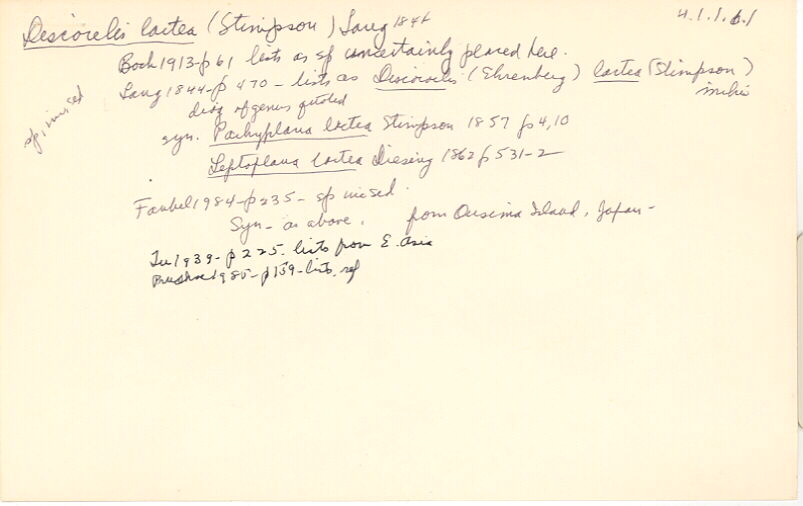 Discocelis lactea (Stimpson) Lang 1844
4.1.1.6.1
Bock 1913-p 61 lists as sp uncertainly placed here.
Lang 1844-p 470 - lists as Discocelis (Ehrenberg) lactea (Stimpson)
mihi
diag of genus quoted
sp. inised
syn. Pachyplana lactea Stimpson 1857 p 4,10
Leptoplana lactea Diesing 1862 p 531-2
Faubel 1984-p 235- sp inised.
Syn- as above. from Ousima Island, Japan-
Tu 1939- p 225. lists from E. Asia
Prudhoe 1985-p 139-lists, ref